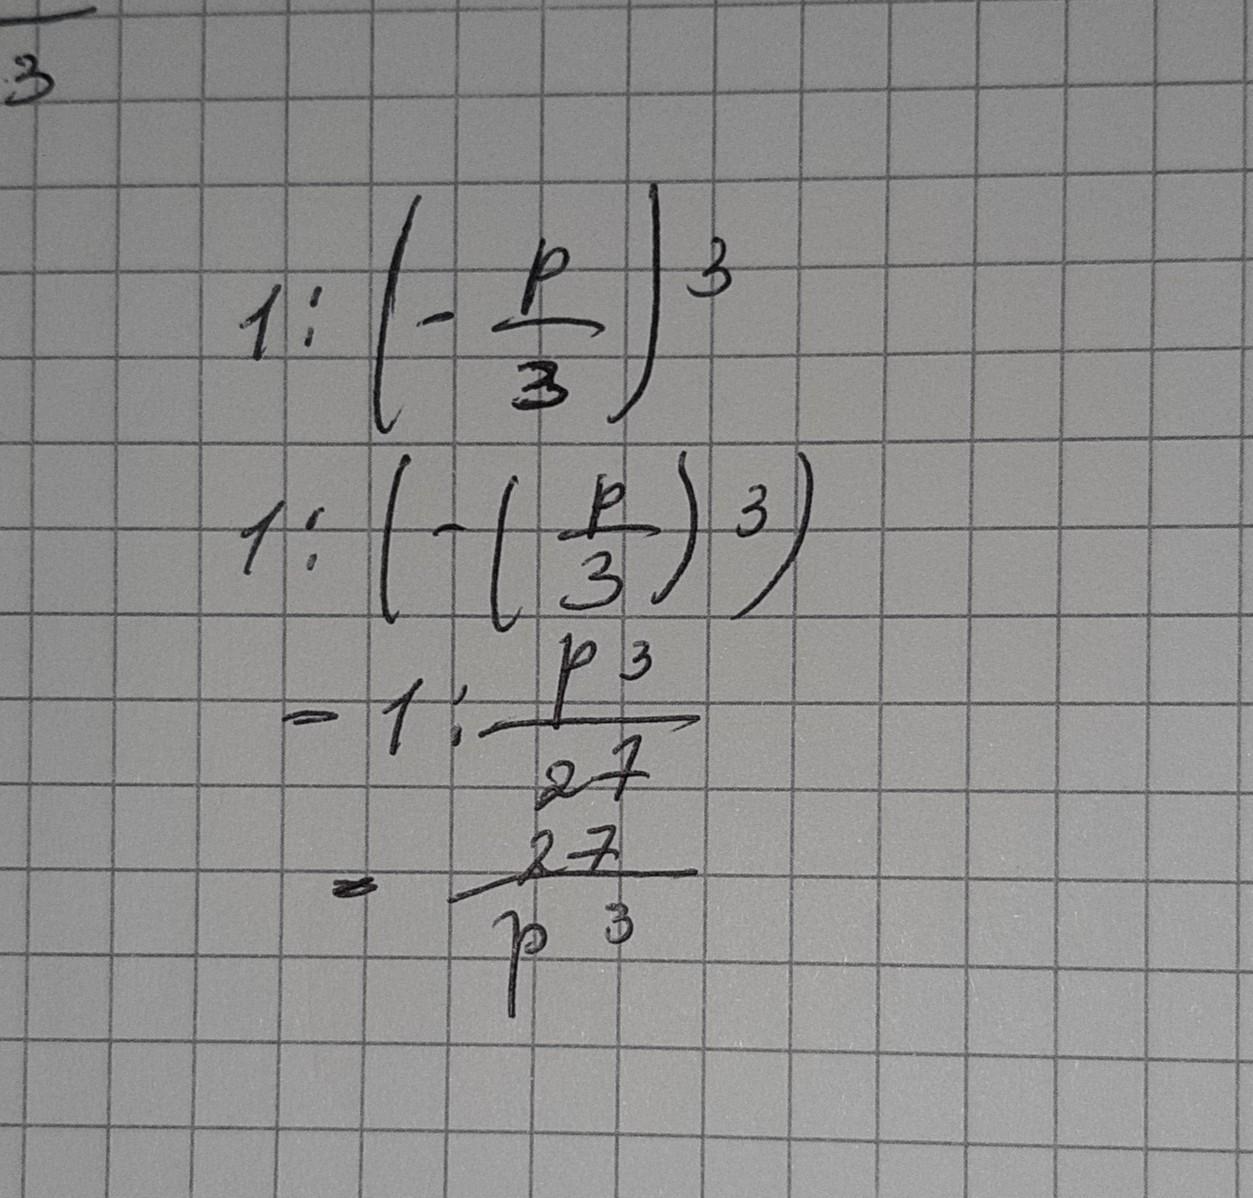 3
1 : (- p/3)^3
1 : (-(p/3)^3)
- 1 : p^3/27
= 27/p^3